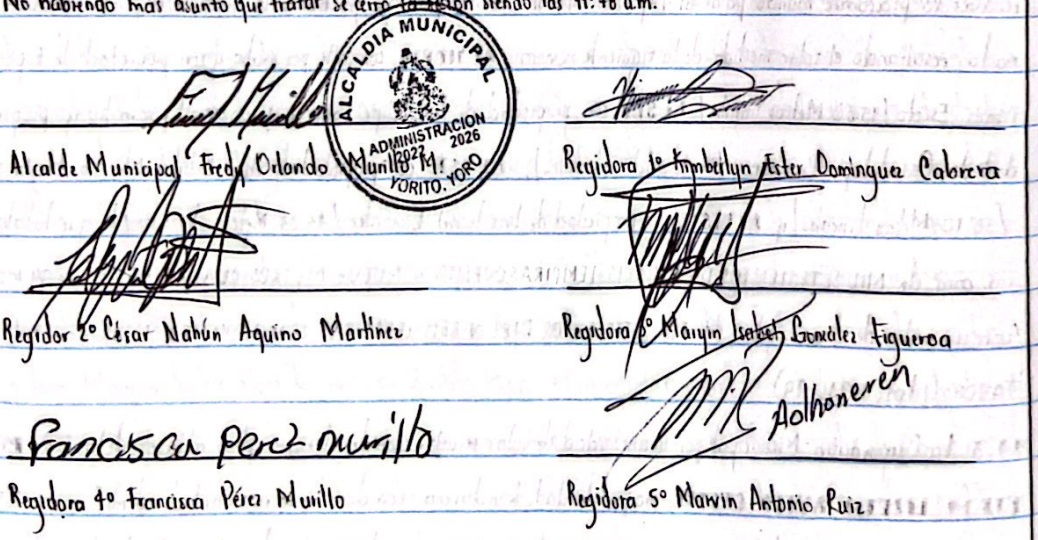 No habiendo más asunto que tratar se cerró la sesión siendo las 11:48 a.m.
ALCALDIA MUNICIPAL
ADMINISTRACION
2022 2026
YORITO, YORO
Alcalde Municipal Fredy Orlando Murillo M.
Regidora 1° Kimberlyn Ester Dominguez Cabrera
Regidor 2° César Nahún Aquino Martínez
Regidora 3° Marvin Isabel González Figueroa
Francisca Perez murillo
Regidora 4° Francisca Pérez Murillo
Regidora 5° Marvin Antonio Ruiz